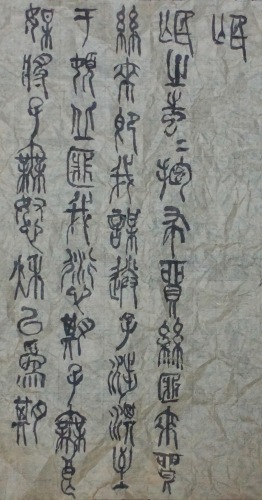 氓
氓之蚩〻抱布貿絲匪來貿
絲來即我謀送子涉淇至
于頓丘匪我愆期子無良
媒將子無怒秋以為期